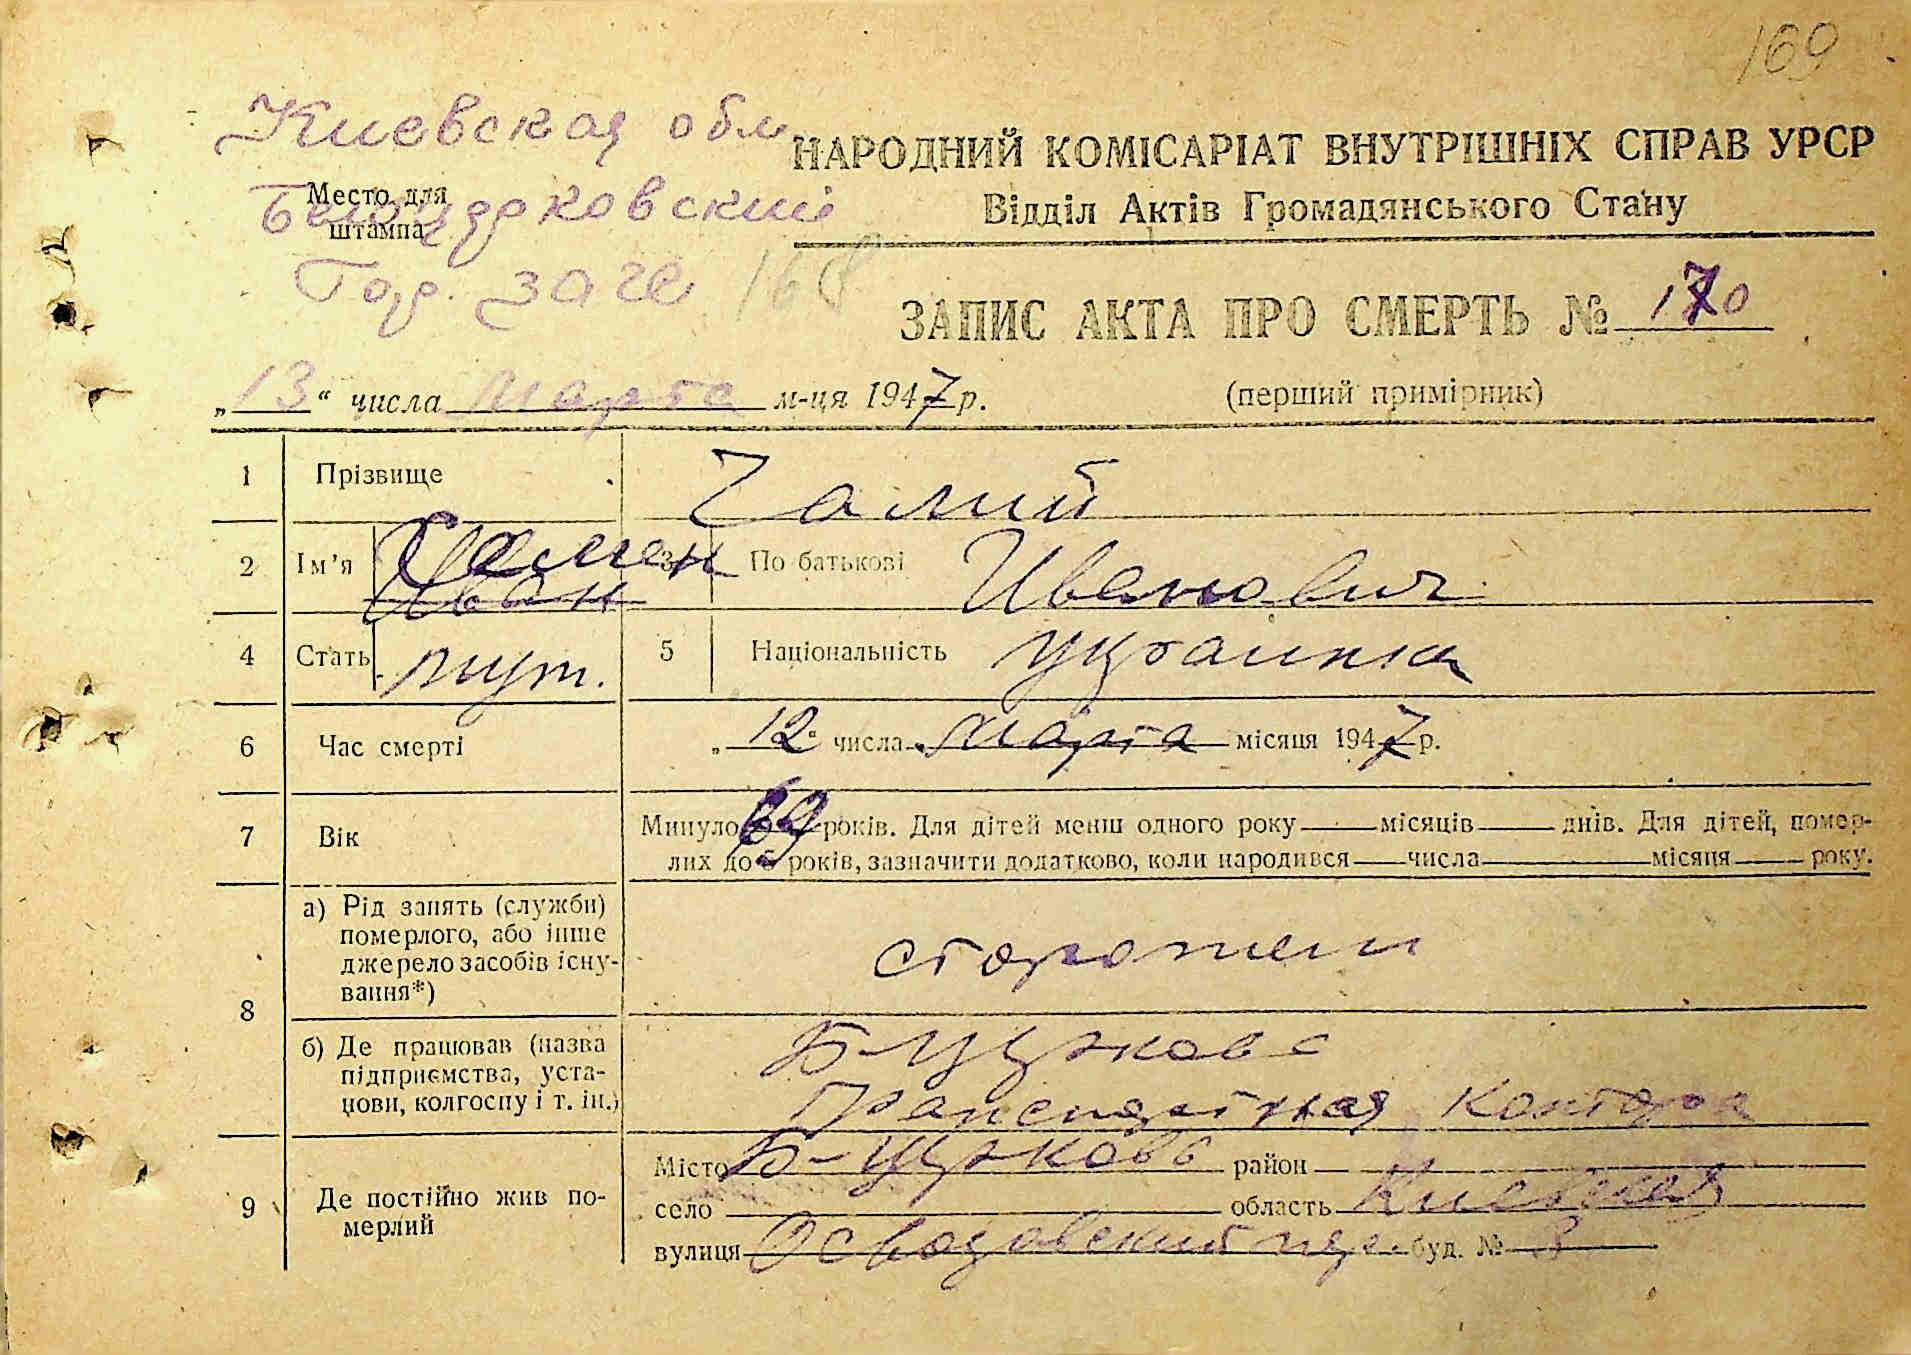 169
Киевская обл
НАРОДНИЙ КОМІСАРІАТ ВНУТРІШНІХ СПРАВ УРСР
Место для
штампа
Белоцерковский
Відділ Актів Громадянського Стану
Гор. загс 168
ЗАПИС АКТА ПРО СМЕРТЬ № 170
„13“ числа марта м-ця 1947 р. (перший примірник)
1 Прізвище Чалий
2 Ім'я Семен 3 По батькові Иванович
Иван
4 Стать муж. 5 Національність украинка
6 Час смерті „12“ числа марта місяця 1947 р.
7 Вік Минуло 69 років. Для дітей менш одного року місяців днів. Для дітей, помер-
лих до 5 років, зазначити додатково, коли народився числа місяця року.
8 а) Рід занять (служби)
померлого, або інше
джерело засобів існу-
вання*)
сторожем
б) Де працював (назва
підприємства, уста-
нови, колгоспу і т. ін.)
Б-Церковь
Транспортная контора
9 Де постійно жив по-
мерлий
Місто Б-Церковь район
село область Киевская
вулиця пер. буд. № 8